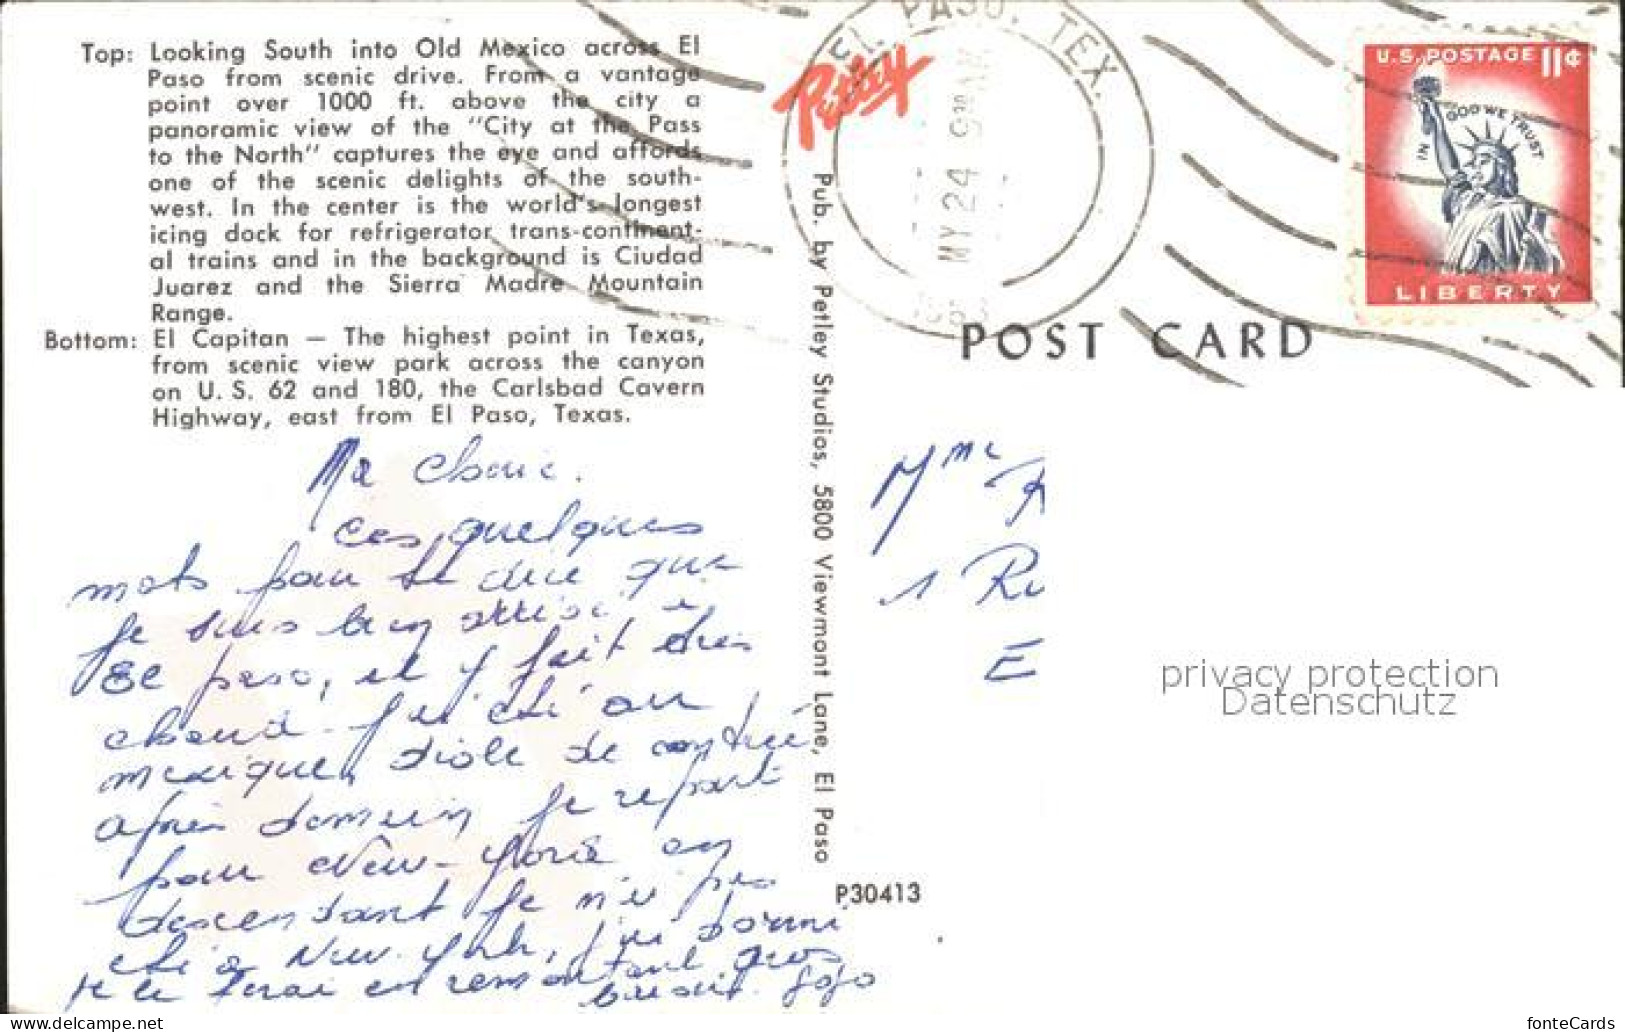 Top: Looking South into Old Mexico across El
Paso from scenic drive. From a vantage
point over 1000 ft. above the city a
panoramic view of the "City at the Pass
to the North" captures the eye and affords
one of the scenic delights of the south-
west. In the center is the world's longest
icing dock for refrigerator trans-continent-
al trains and in the background is Ciudad
Juarez and the Sierra Madre Mountain
Range.
Bottom: El Capitan — The highest point in Texas,
from scenic view park across the canyon
on U. S. 62 and 180, the Carlsbad Cavern
Highway, east from El Paso, Texas.
Ma
ces quelques
mots pour te dire que
je suis bien arrivé à
El paso, et il y fait très
chaud. J'ai été au
mexique, drole de contrée
après demain je repart
pour New-York en
descendant je n'ai pas
été a New York, j'ai dormi
je le ferai en remontant gros
baisers. Jojo
Petley
Pub. by Petley Studios, 5800 Viewmont Lane, El Paso
P30413
EL PASO, TEX.
MY 24 9 30 AM
U.S. POSTAGE 11¢
IN GOD WE TRUST
LIBERTY
POST CARD
Mme
1 Ru
E
privacy protection
Datenschutz
www.delcampe.net
fonteCards